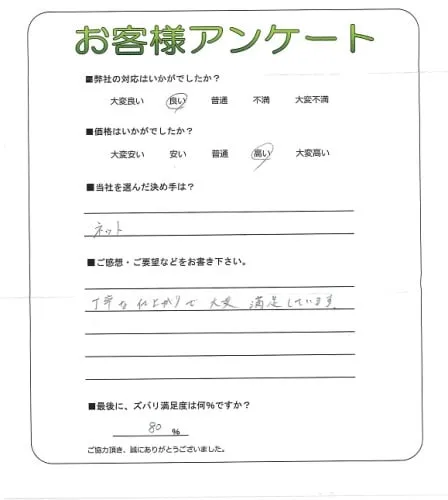 お客様アンケート
■弊社の対応はいかがでしたか？
大変良い 良い 普通 不満 大変不満
■価格はいかがでしたか？
大変安い 安い 普通 高い 大変高い
■当社を選んだ決め手は？
ネット
■ご感想・ご要望などをお書き下さい。
丁寧な仕上がりで 大変 満足しています。
■最後に、ズバリ満足度は何%ですか？
80 %
ご協力頂き、誠にありがとうございました。